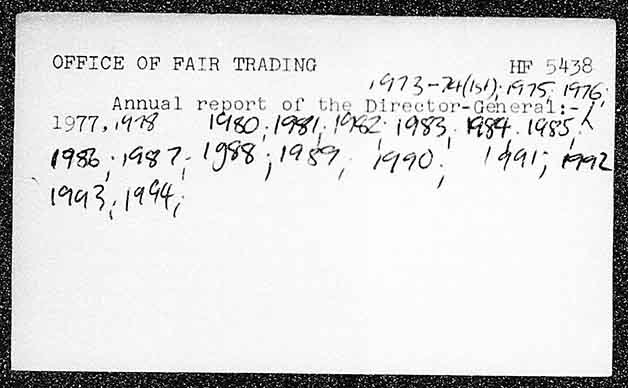 OFFICE OF FAIR TRADING HF 5438
, 1973-74(1st); 1975; 1976;
Annual report of the Director-General:-
1977, 1978 1980; 1981; 1982; 1983; 1984; 1985;
1986; 1987; 1988; 1989; 1990; 1991; 1992
1993; 1994;